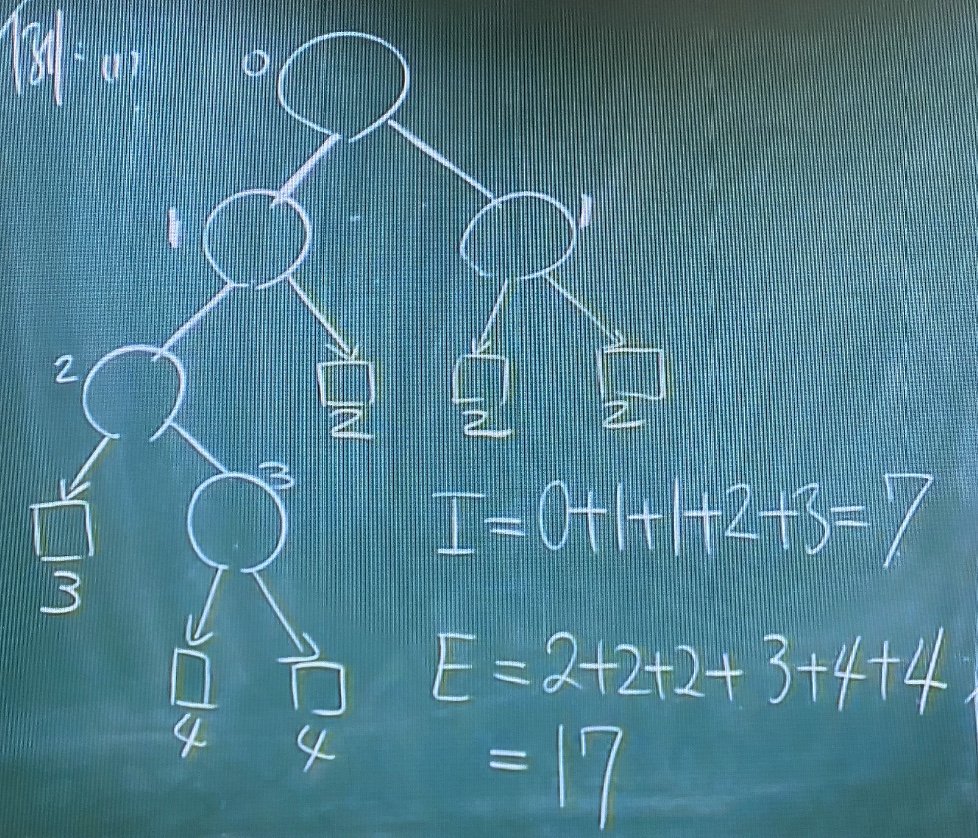 例:(1)
0
1
1
2
2
2
2
3
3
4
4
I=0+1+1+2+3=7
E=2+2+2+3+4+4
=17